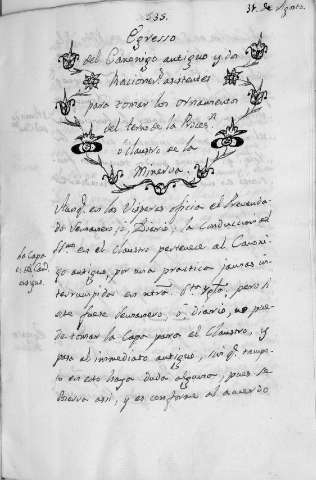 535.
31. de Agosto.
Egresso
del Canonigo antiguo y dos
Racioner.s asistentes
para tomar los ornamentos
del terno de la Proces.n
o Claustro de la
Minerva.
Aunq.e en las Visperas oficia el Prevenda
do Semanero, ô Diario; la Conduccion del
en el Claustro pertenece al Canoni
go antiguo, por una practica jamas in
terrumpida en ntra. pero si
este fuese Semanero, ô Diario, no pue
de tomar la Capa para el Claustro, y
pasa al inmediato antiguo, sin q.e tampo
co en esto haya duda alguna, pues se
observa assi, y es conforme al acuerdo
la Capa